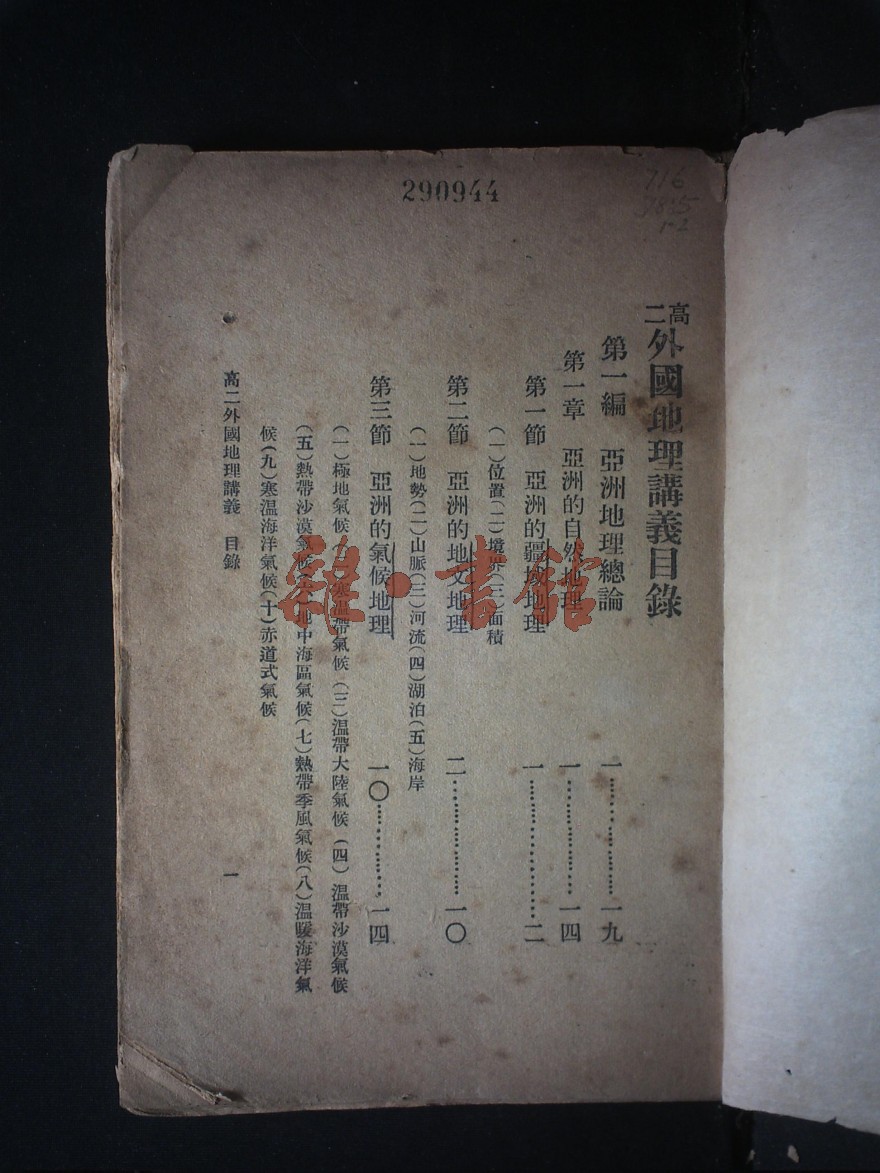 290944
716
高二外國地理講義目錄
第一編　亞洲地理總論　一………………一九
第一章　亞洲的自然地理　一………………一四
第一節　亞洲的疆域地理　一………………二
(一)位置(二)境界(三)面積
第二節　亞洲的地文地理　二………………一〇
(一)地勢(二)山脈(三)河流(四)湖泊(五)海岸
第三節　亞洲的氣候地理　一〇………………一四
(一)極地氣候(二)寒溫帶氣候(三)溫帶大陸氣候(四)溫帶沙漠氣候
(五)熱帶沙漠氣候(六)地中海區氣候(七)熱帶季風氣候(八)溫暖海洋氣
候(九)寒溫海洋氣候(十)赤道式氣候
高二外國地理講義　目錄　一
雜·書館